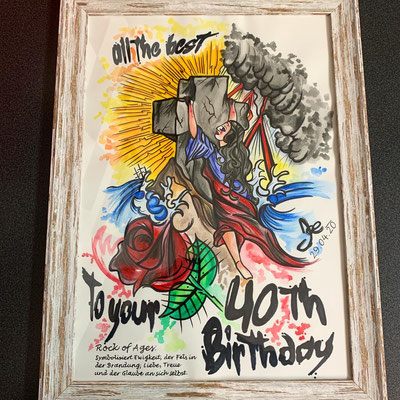 all the best
29.04.20
to your
40th
Birthday
Rock of Ages.
Symbolisiert Ewigkeit, der Fels in
der Brandung, Liebe, Treue
und der Glaube an sich selbst.